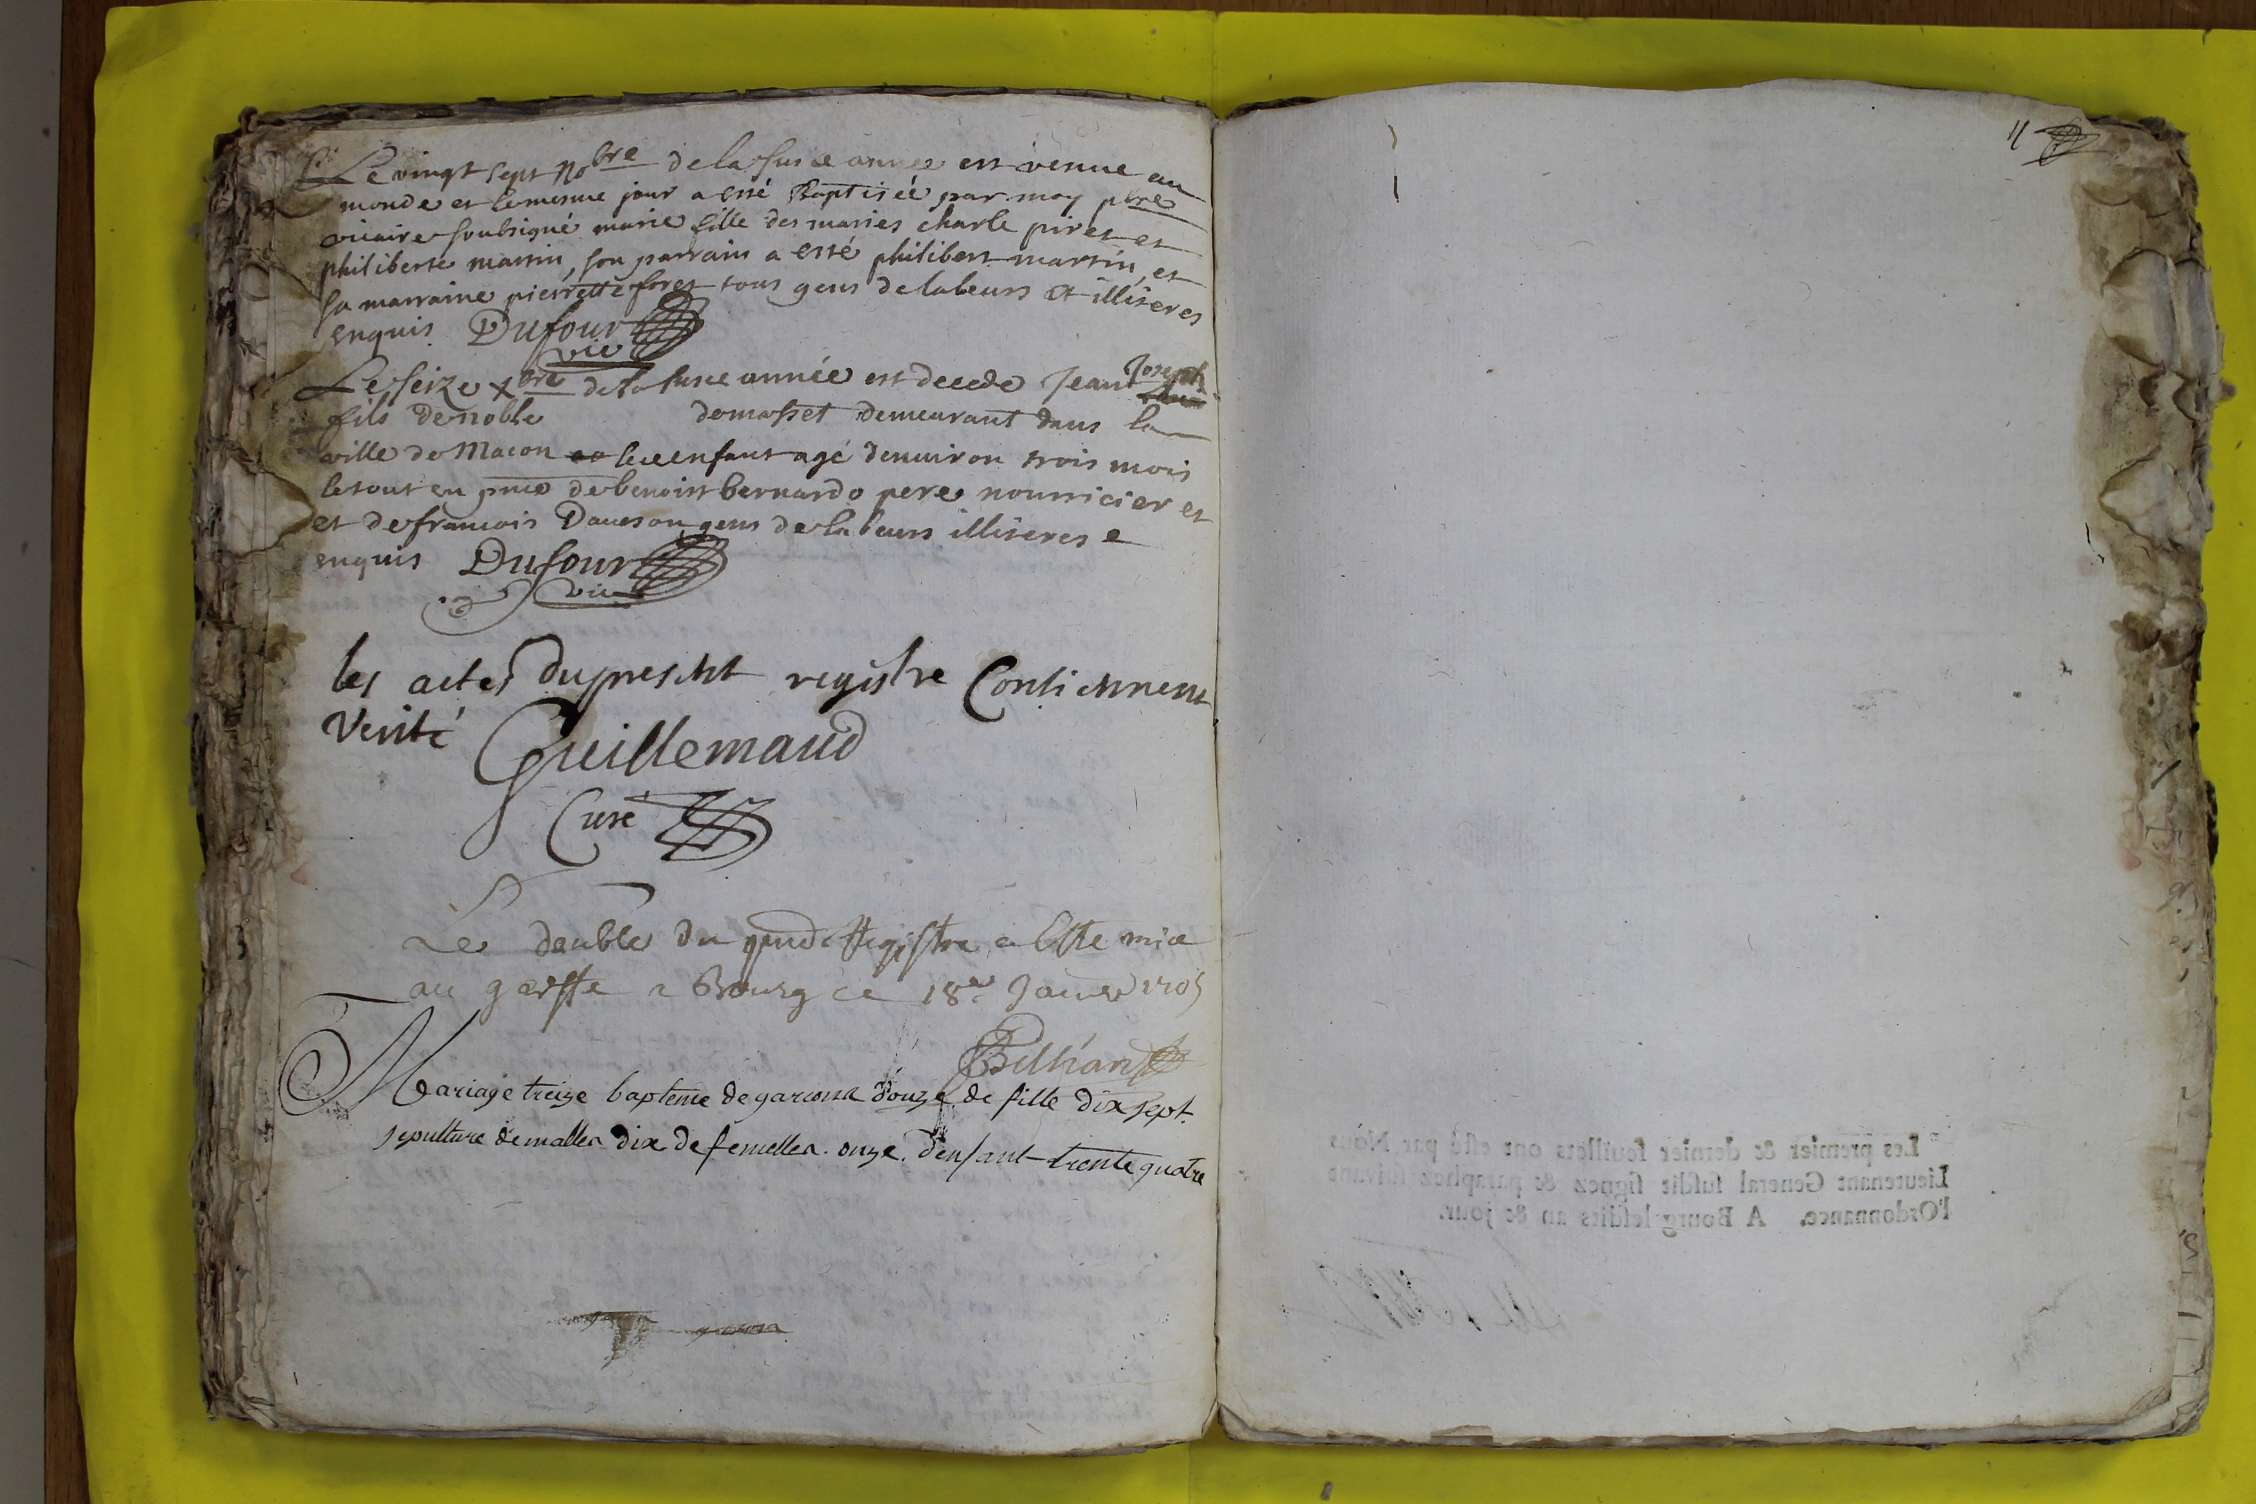 Le vingt sept no<sup>bre</sup> de la susce année est venue au
monde et le mesme jour a esté Baptisée par moy pbre
vicaire soubsigné marie fille des maries charle piret et
philiberte martin, son parrain a esté philibert martin, et
sa marraine pierrette foret tous gens de labeurs et illiteres
enquis Dufour
vic
Le seize x<sup>bre</sup> de la susce année est decede Jean Joseph
fils de noble demasset demeurant dans la
ville de Macon lece enfant agé denuiron trois mois
le tout en pnce de benoist bernardo pere nourricier et
et de francois Daueson gens de labeurs illiteres e
enquis Dufour
vic
les actes du present registre Contiennent
verité Guillemaud
Curé
Le double du pnd Registre a Este mis
au greffe a Bourg ce 18e Janier 1705
Mariage treize bapteme de garcons douze de fille dix sept
sepulture de malles dix de femelles onze d'enfant trente quatre
11
Les premier & dernier feuillets ont esté par Nous
Lieutenant General susdit signez & paraphez suivant
l'Ordonnance. A Bourg lesdits an & jour.